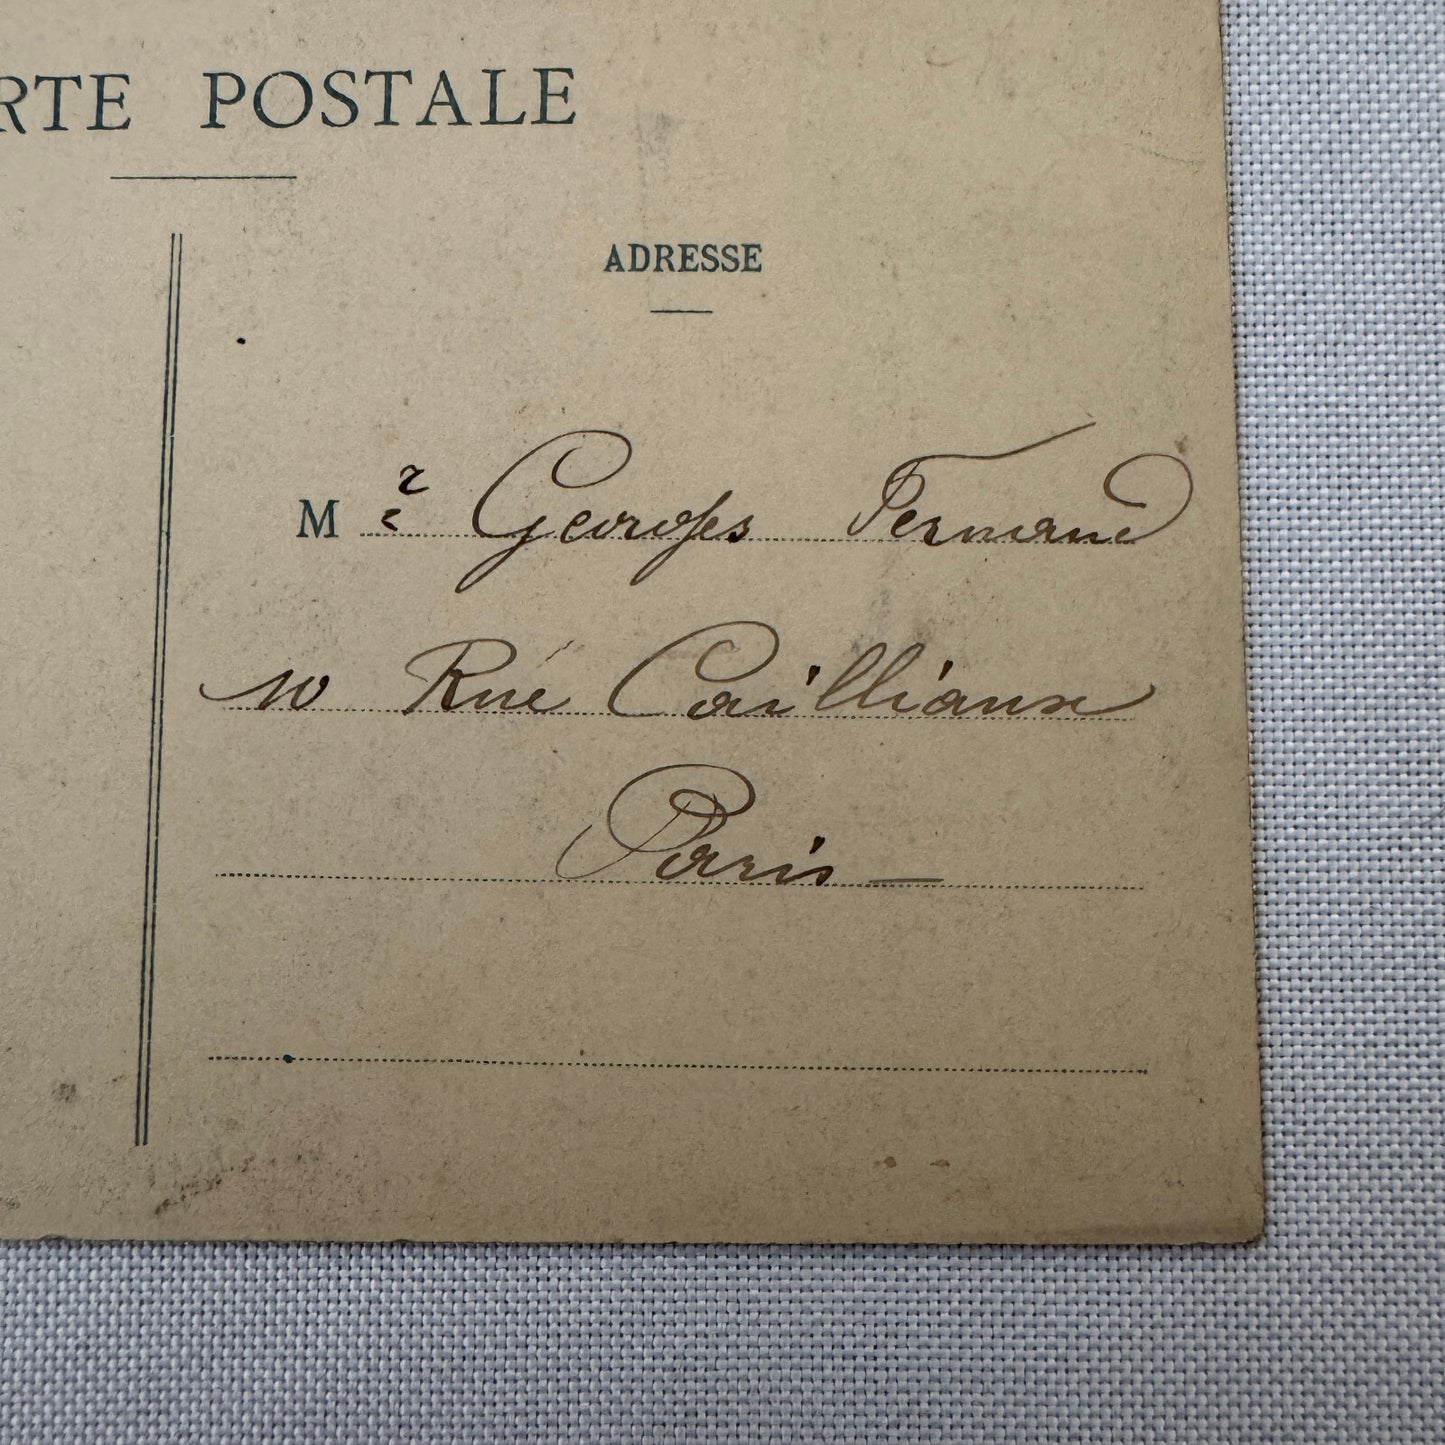 RTE POSTALE
ADRESSE
Mr Georges Fernand
10 Rué Cailliaux
Paris —